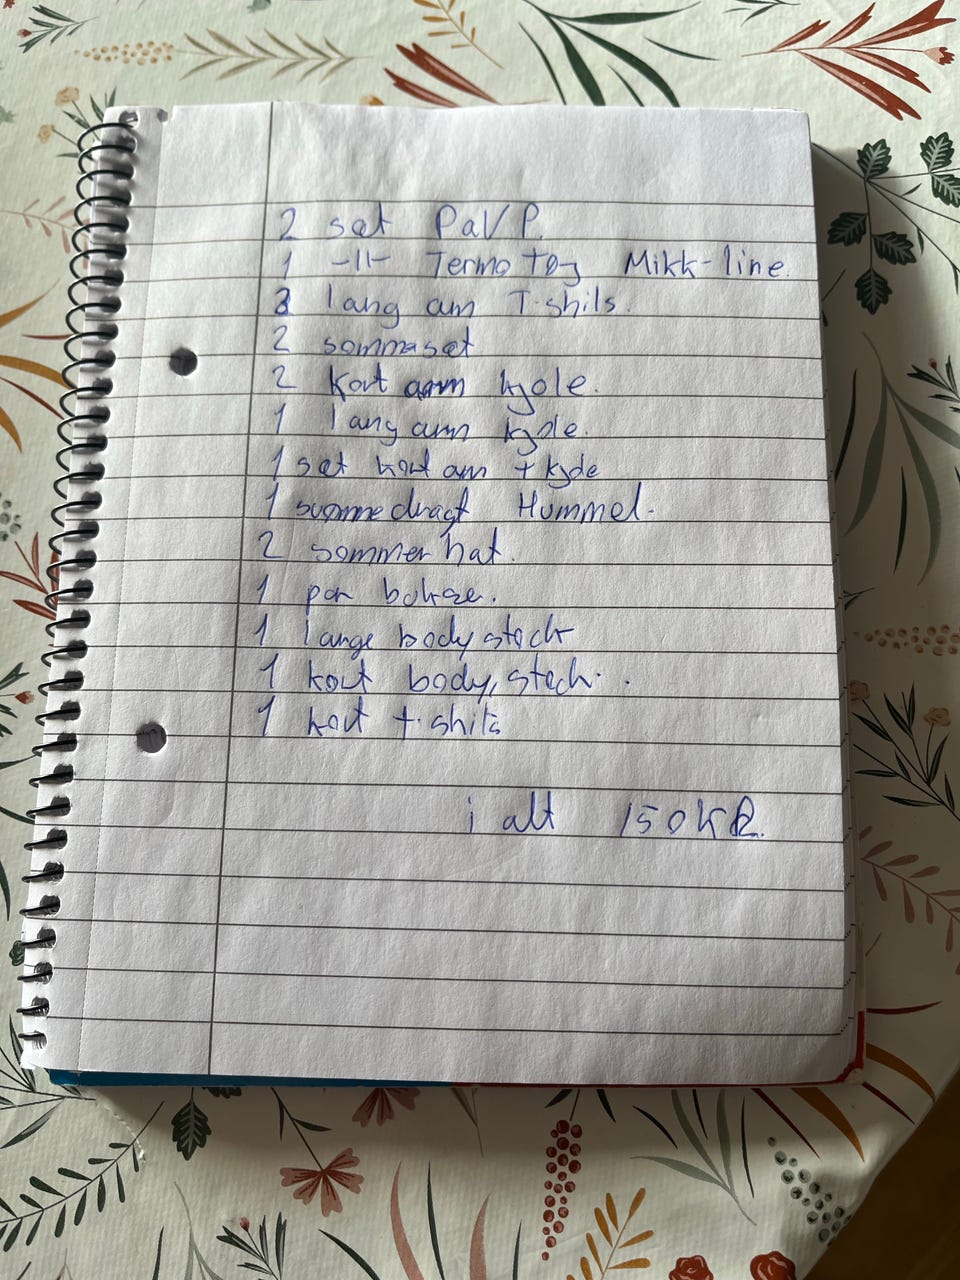 2 sæt PaW P.
1 -11- Termo Tøj Mikk-line.
3 lang am T-shils.
2 sommasæt
2 Kort arm kjole.
1 lang arm kjole.
1 sæt kort am + kjole
1 svømmedragt Hummel.
2 sommer hat.
1 par bukse.
1 lange body stock
1 kort body, stech.
1 kort t-shits
i alt 150KR.